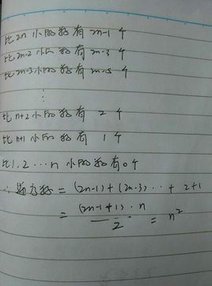 比2n小的数有2n-1个
比2n-2小的数有2n-3个
比2n-3小的数有2n-5个
⋮
比n+2小的数有2个
比n+1小的数有1个
比1,2…n小的数有0个
∴ = (2n-1)+(2n-3)…+2+1
= (2n-1+1)·n / 2 = n²